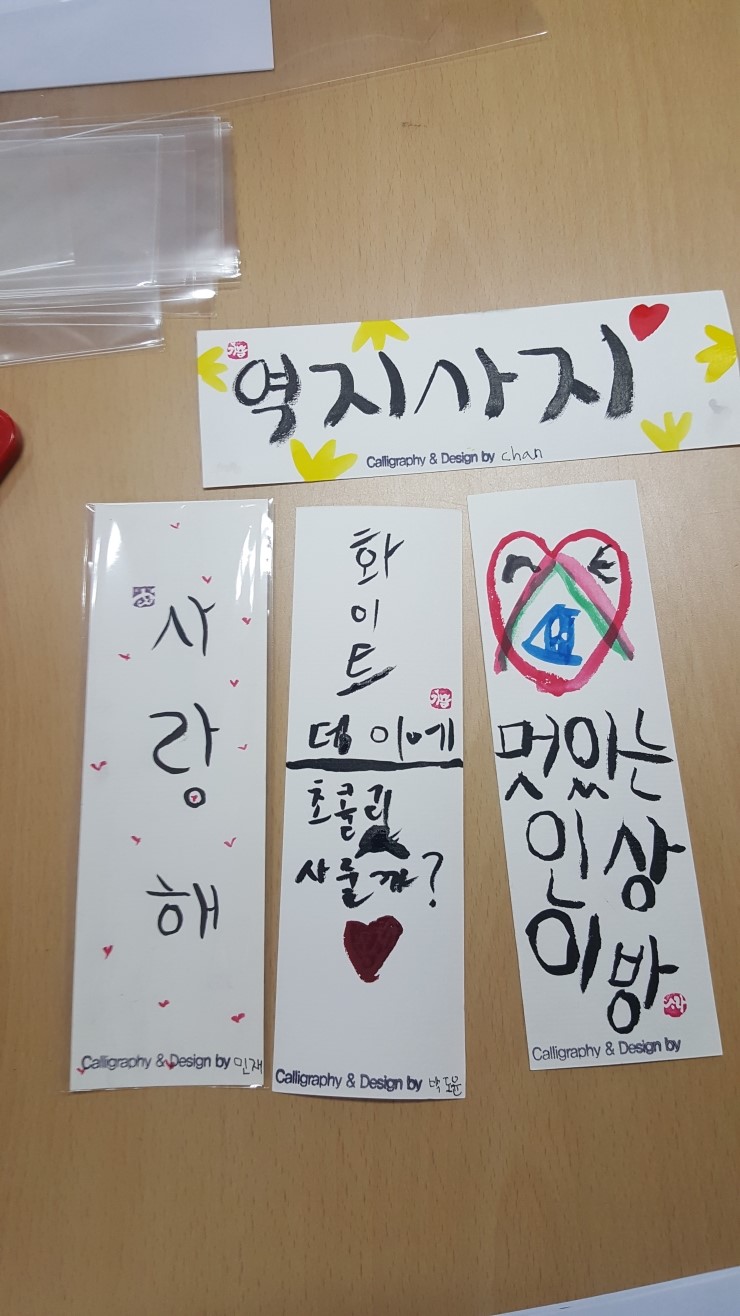 역지사지
Calligraphy & Design by chan
사
랑
해
Calligraphy & Design by 민재
화
이
트
데이에
초콜릿
사줄까?
Calligraphy & Design by 박도윤
멋있는
인상
이방
Calligraphy & Design by